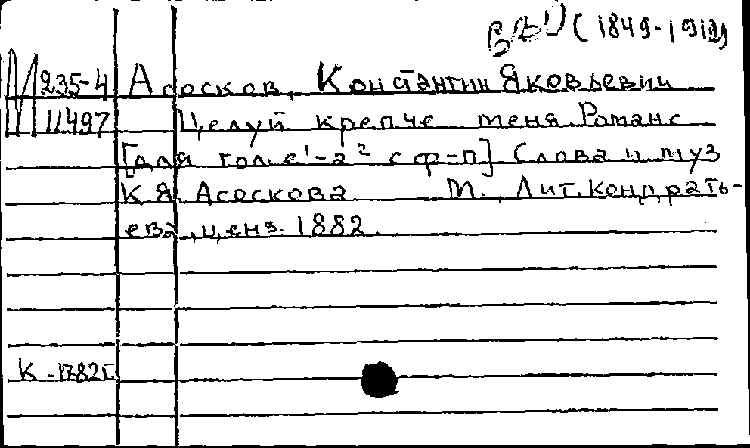 (1849-1919)
М 235-4 Асосков, Константин Яковьевич
11497 Целуй крепче меня. Романс
[для гол. e¹-a² с ф=п] Слова и муз
К.Я. Асоскова М. Лит. Кондрать-
ева, ценз. 1882.
К-1782г.